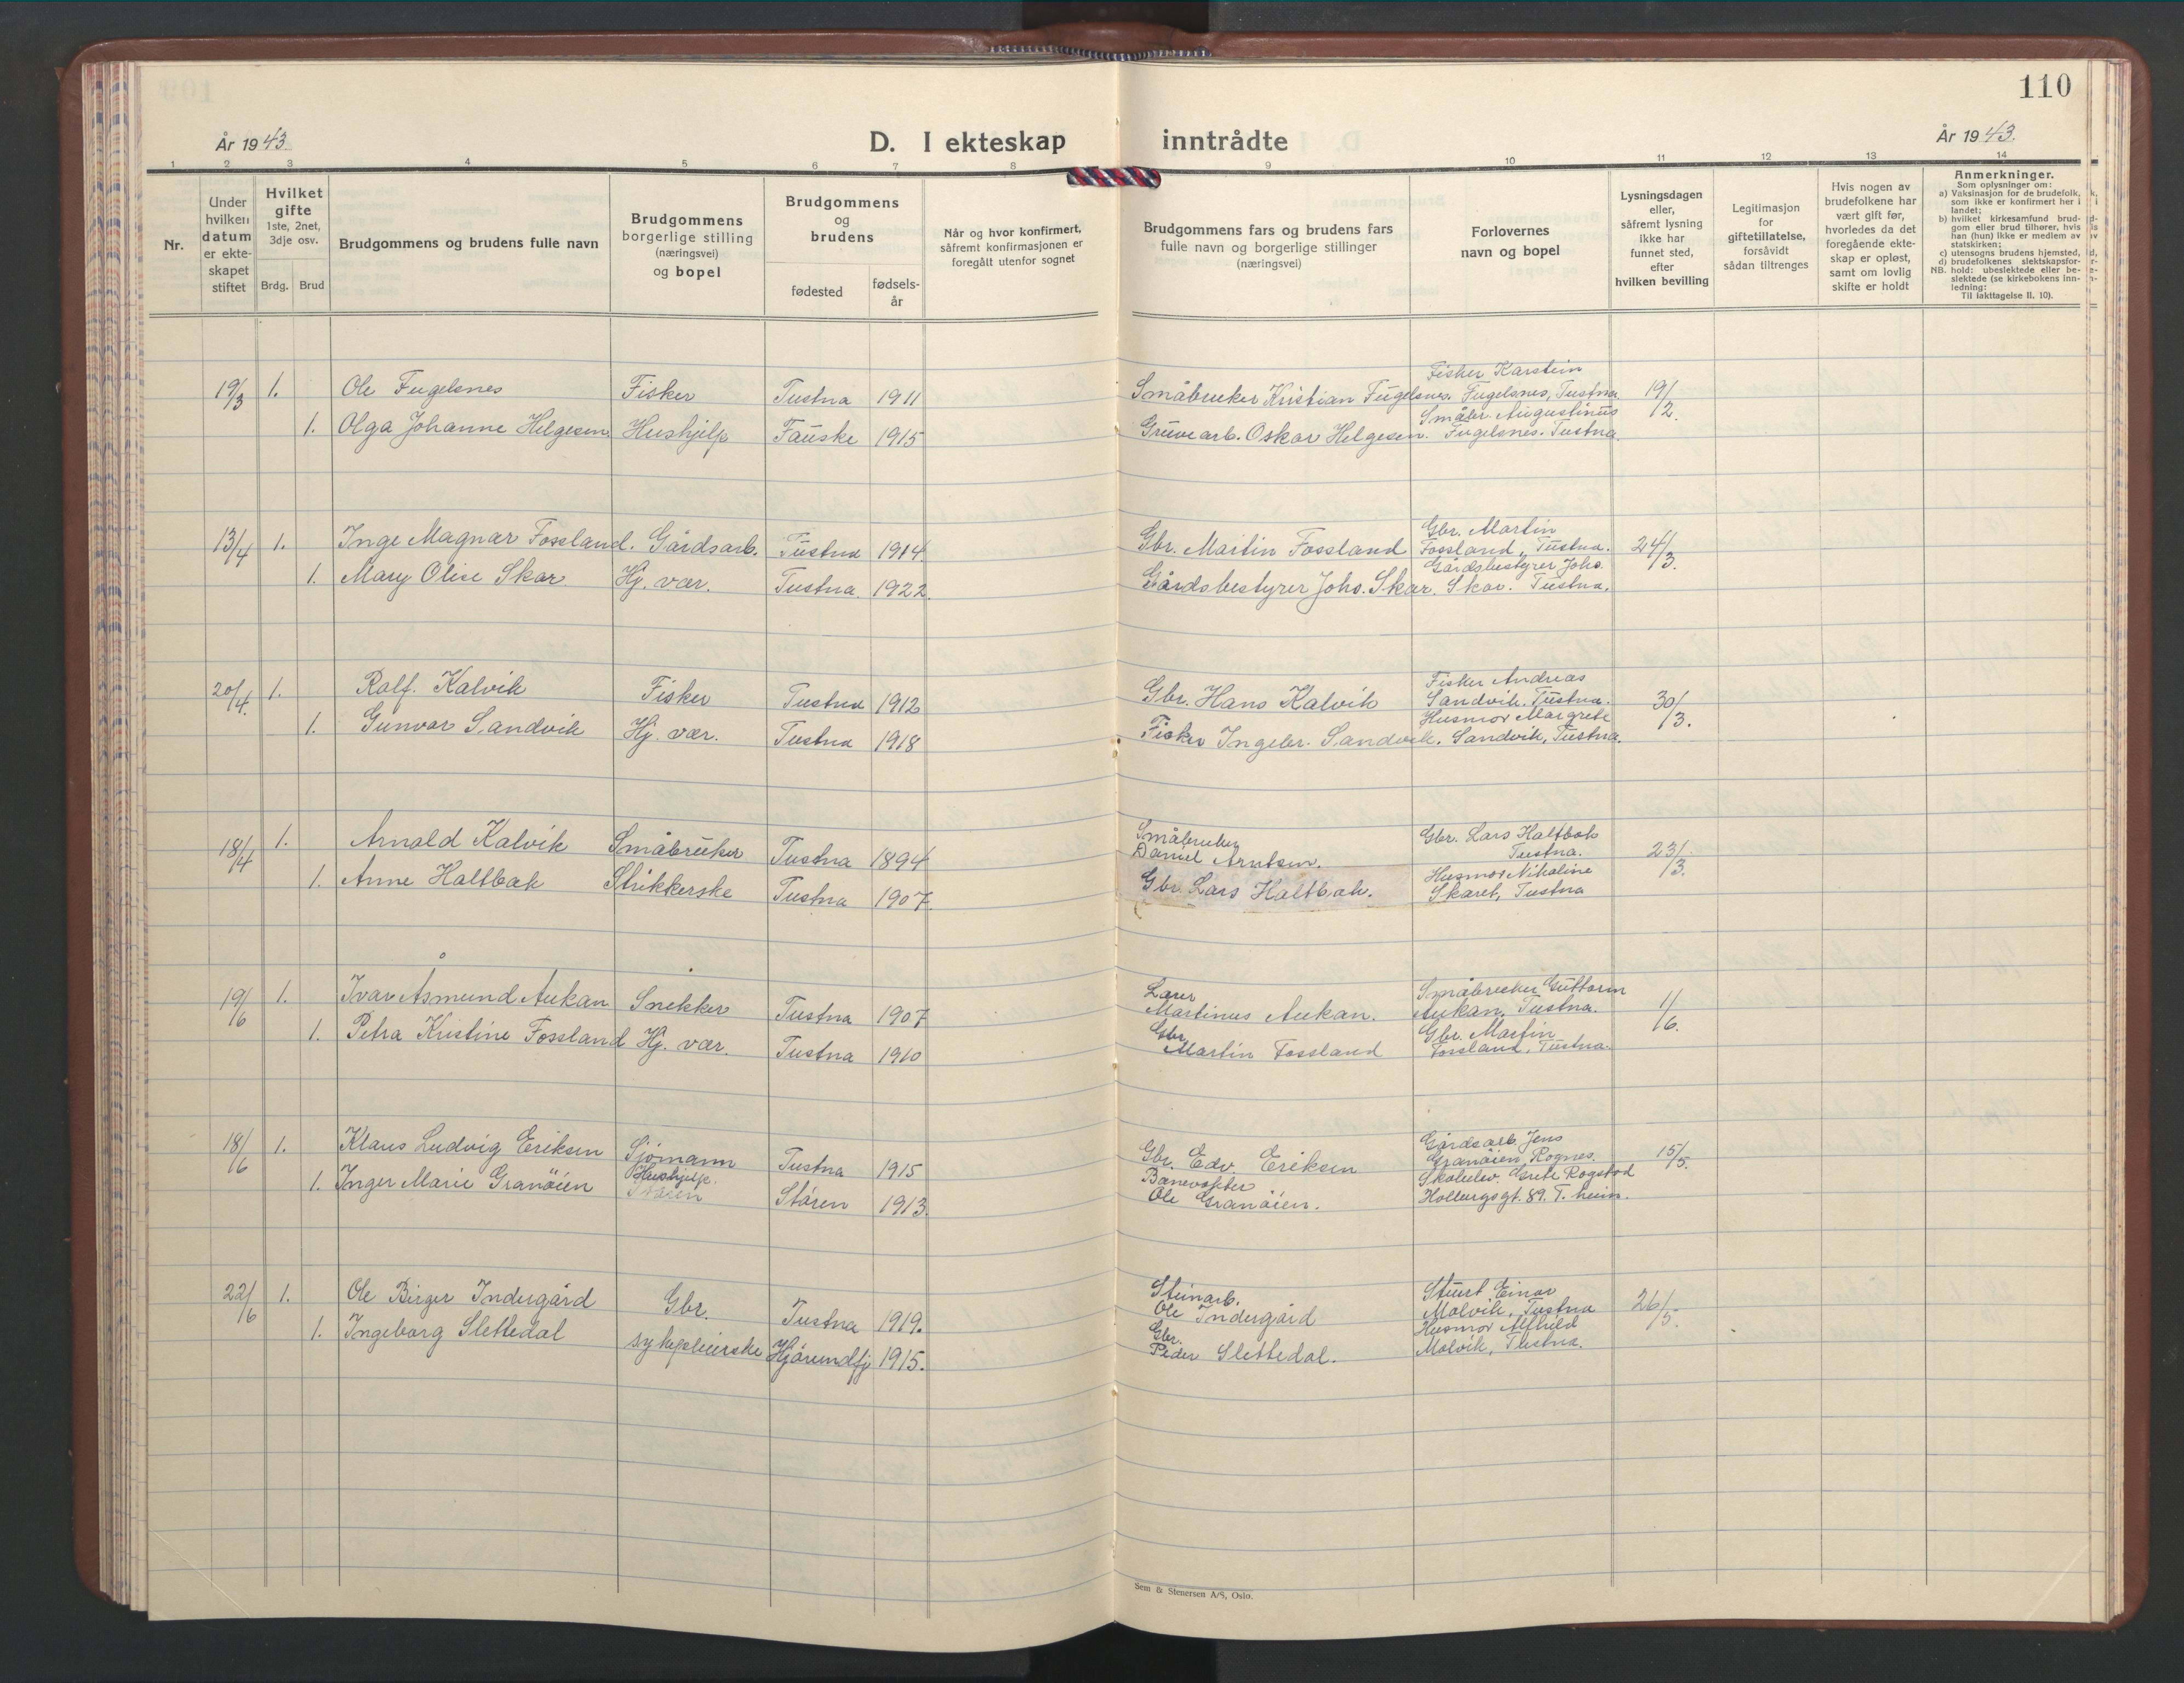 110
År 1943.
D. I ekteskap inntrådte
År 1943.
1 2 3 4 5 6 7 8 9 10 11 12 13 14
Nr.
Under hvilken datum er ekteskapet stiftet
Hvilket gifte
1ste, 2net, 3dje osv.
Brdg. Brud
Brudgommens og brudens fulle navn
Brudgommens borgerlige stilling (næringsvei) og bopel
Brudgommens og brudens
fødested
fødsels-år
Når og hvor konfirmert, såfremt konfirmasjonen er foregått utenfor sognet
Brudgommens fars og brudens fars fulle navn og borgerlige stillinger (næringsvei)
Forlovernes navn og bopel
Lysningsdagen eller, såfremt lysning ikke har funnet sted, efter hvilken bevilling
Legitimasjon for giftetillatelse, forsåvidt sådan tiltrenges
Hvis nogen av brudefolkene har vært gift før, hvorledes da det foregående ekteskap er opløst, samt om lovlig skifte er holdt
Anmerkninger.
Som oplysninger om:
a) Vaksinasjon for de brudefolk, som ikke er konfirmert her i landet;
b) hvilket kirkesamfund brudgom eller brud tilhører, hvis han (hun) ikke er medlem av statskirken;
c) utensogns brudens hjemsted,
d) brudefolkenes slektskapsforhold: ubeslektede eller beslektede (se kirkebokens innledning:
NB.
Til iakttagelse II, 10).
19/3 1. Ole Fugelsnes Fisker Tustna 1911 Småbruker Kristian Fugelsnes. Fisker Karstein Fugelsnes, Tustna 19/2.
1. Olga Johanne Helgesen Hushjelp Fauske 1915 Gruvearb. Oskar Helgesen. Småbr. Augustinus Fugelsnes. Tustna.
13/4 1. Inge Magnar Fossland. Gårdsarb. Tustna 1914 Gbr. Martin Fossland Gbr. Martin Fossland, Tustna. 24/3.
1. Mary Olise Skar Hj. vær. Tustna. 1922. Gårdsbestyrer Johs. Skar. Gårdsbestyrer Johs. Skar. Tustna.
20/4. 1. Ralf. Kalvik Fisker Tustna 1912 Gbr. Hans Kalvik Fisker Andreas Sandvik. Tustna. 30/3.
1. Gunvor Sandvik Hj. vær. Tustna 1918 Fisker Ingebr. Sandvik. Husmor Margrete Sandvik, Tustna.
18/4 1. Arnold Kalvik Småbruker Tustna 1894 Småbruker Daniel Arntsen. Gbr. Lars Haltbak Tustna. 23/3.
1. Anne Haltbak Strikkerske Tustna 1907. Gbr. Lars Haltbak. Husmor Nikoline Skaret, Tustna
19/6 1. Ivar Åsmund Aukan Snekker Tustna 1907 Lærer Martinus Aukan. Småbruker Guttorm Aukan. Tustna. 1/6.
1. Petra Kristine Fossland Hj. vær. Tustna 1910 Gbr. Martin Fossland Gbr. Martin Fossland, Tustna.
18/6 1. Klaus Ludvig Eriksen Sjømann Tustna 1915 Gbr. Edv. Eriksen Gårdsarb. Jens Granøien Rognes. 15/5.
1. Inger Marie Granøien Hushjelp. Støren 1913. Banevokter Ole Granøien. Skoleelev. Grete Rogstad Holbergsgt. 89. T. heim.
22/6 1. Ole Birger Indergård Gbr. Tustna 1919. Steinarb. Ole Indergård Stuert Einar Molvik, Tustna 26/5.
1. Ingeborg Slettedal sykepleierske Hjørundfj 1915. Gbr. Peder Slettedal. Husmor Alfhild Molvik, Tustna.
Sem & Stenersen A/S, Oslo.